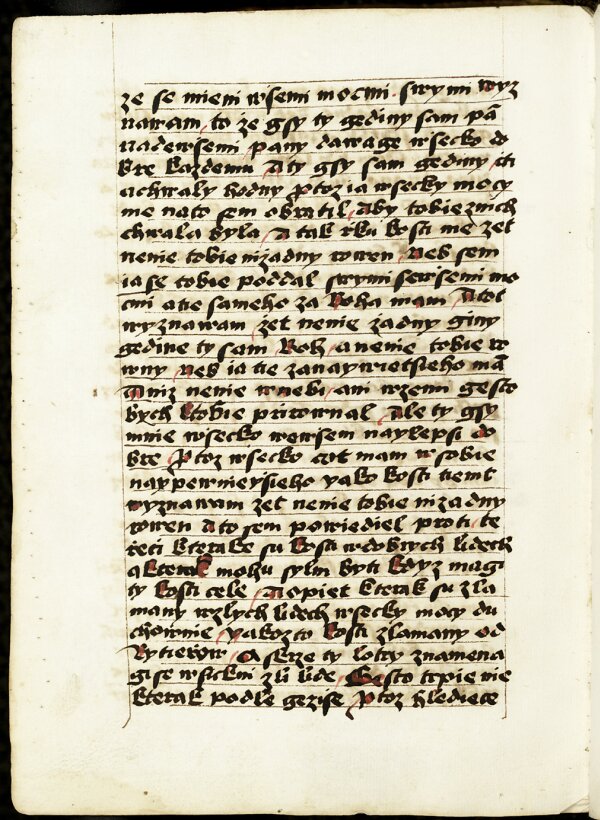 ze se mieni wsemi mocmi swymi wyz
nawam to ze gsy ty gediny sam pā
nadewsemi pany dawage wsecko do
bre kazdemu A ty gsy sam gediny cti
achwaly hodny ptoz ia wsecky mocy
me nato sem obratil Aby tobie znich
chwala byla A tak rku kosti me zet
nenie tobie nizadny rowen Neb sem
ia se tobie poddal swymi sewsemi mo
cmi a tie sameho za Boha mam A tot
wyznawam zet nenie zadny giny
gedine ty sam Boh a nenie tobie ro
wny Neb ia tie zanaywietsieho mā
A niz nenie wnebi ani wzemi gesto
bych ktobie prirownal Ale ty gsy
mnie wsecko wewsem naylepsi do
bre Ptoz wsecko cot mam wsobie
naypewnieysieho yako kosti tiemt
wyznawam zet nenie tobie nizadny
rowen A to sem powiediel proti te
reci kterake su kosti wdobrych lidech
a kterak mohu sylni byti kdyz magi
ty kosti cele A opiet kterak su zla
many wzlych lidech wsecky mocy du
chownie yakozto kosti zlamany od
Rytierow A skrze ty lotry znamena
gi se wsickni zli lide Gesto trpie nie
kterak podle gezise Ptoz hlediece